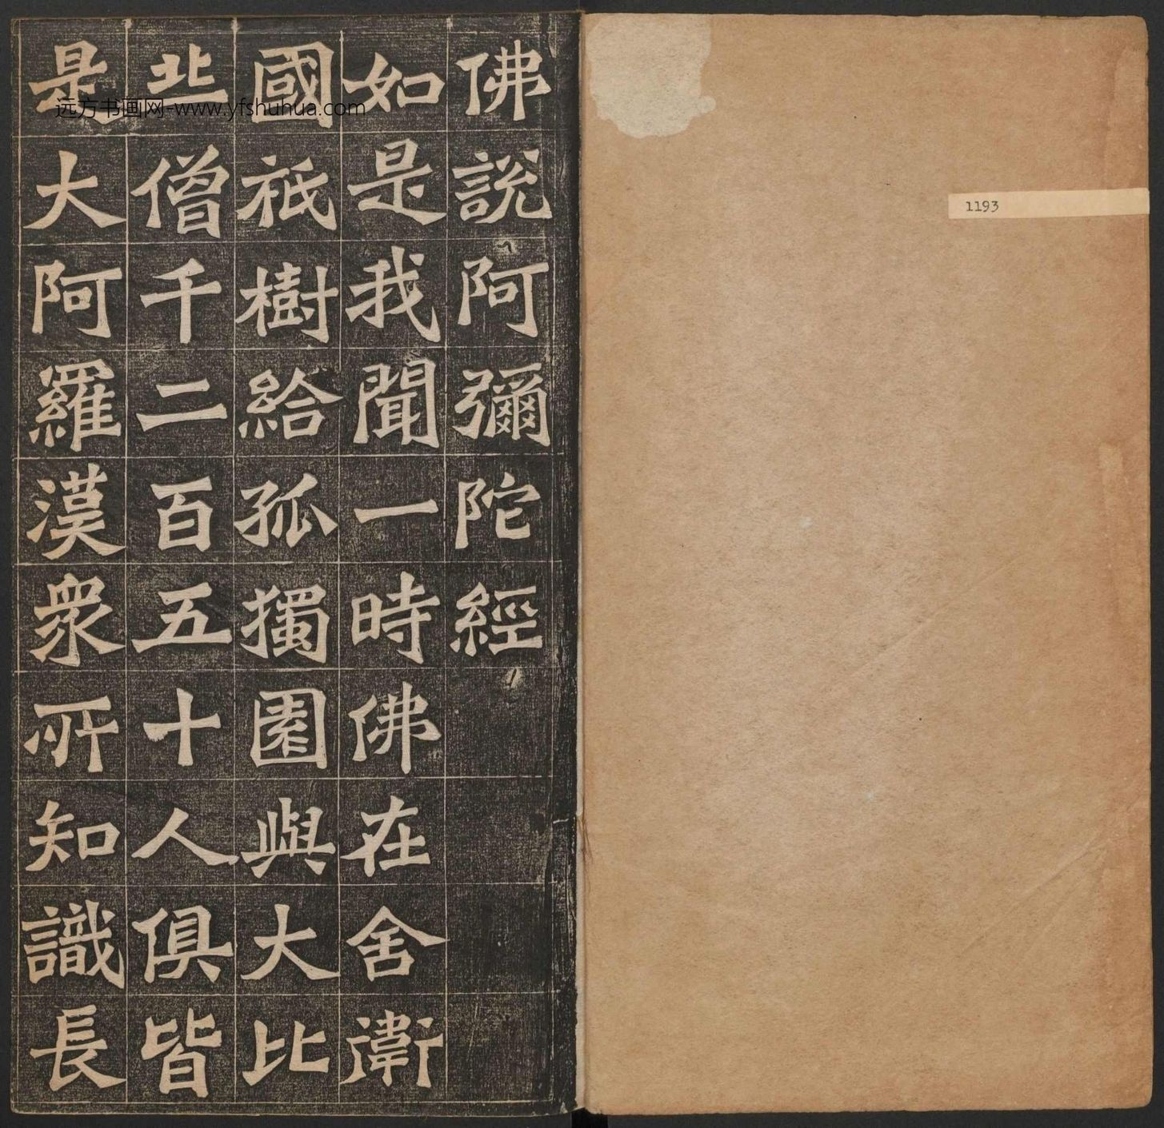 佛說阿彌陀經
如是我聞一時佛在舍衛
國祇樹給孤獨園與大比
丘僧千二百五十人俱皆
是大阿羅漢衆所知識長
远方书画网-www.yfshuhua.com
1193